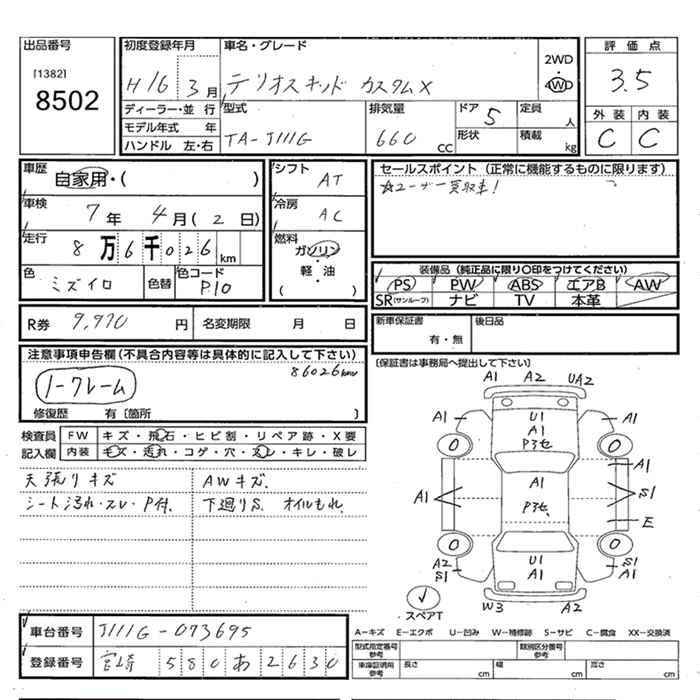 出品番号
[1382]
8502
初度登録年月
H16年 3月
車名・グレード
テリオスキッド カスタムX
2WD
・
4WD
評価点
3.5
外装 内装
C C
ディーラー・並行
モデル年式 年
ハンドル 左・右
型式
TA-J111G
排気量
660 CC
ドア 5
形状
定員 人
積載 kg
車歴
自家用・( )
車検
7年 4月(2日)
走行
8万6千026km
色
ミズイロ
色替
色コード
P10
シフト
AT
冷房
AC
燃料
ガソリン
・
軽・油
( )
セールスポイント (正常に機能するものに限ります)
☆ユーザー買取車!
装備品 (純正品に限り〇印をつけてください)
PS PW ABS エアB AW
SR(サンルーフ) ナビ TV 本革
R券 9,970 円 名変期限 月 日
新車保証書
有・無
後日品
[保証書は事務局へ提出して下さい]
注意事項申告欄(不具合内容等は具体的に記入して下さい)
86026km
ノークレーム
修復歴 有〔箇所 〕
検査員
記入欄
FW キズ・飛石・ヒビ割・リペア跡・X要
内装 キズ・汚れ・コゲ・穴・スレ・キレ・破レ
天張りキズ AWキズ.
シート汚れ・スレ・P付. 下廻りS. オイルもれ.
A1 A2 UA2
A1 U1 A1 A1
P3セ
A1 A1 A1
P3セ S1
E
A2 S1 U1 A1 S1 A2
W3 A2
スペアT
車台番号 J111G-073695
登録番号 宮崎 580 あ 2630
A−キズ E−エクボ U−凹み W−補修跡 S−サビ C−腐食 XX−交換済
型式指定番号 参考
類別区分番号 参考
車庫証明用 参考
長さ cm 幅 cm 高さ cm